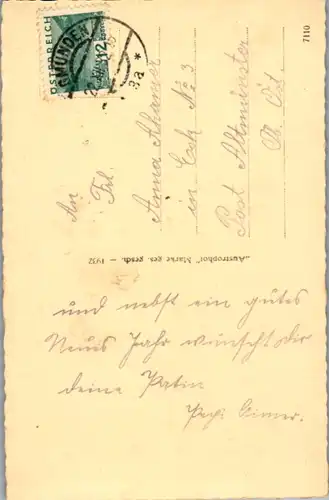 ÖSTERREICH
12
GMUNDEN
3a *
7110
An
Frl.
Anna
in Eck No 3
Post Altmünster
O. Öst.
„Austrophot" Marke ges. gesch. — 1932
und nebst ein gutes
Neues Jahr wünscht dir
deine Patin